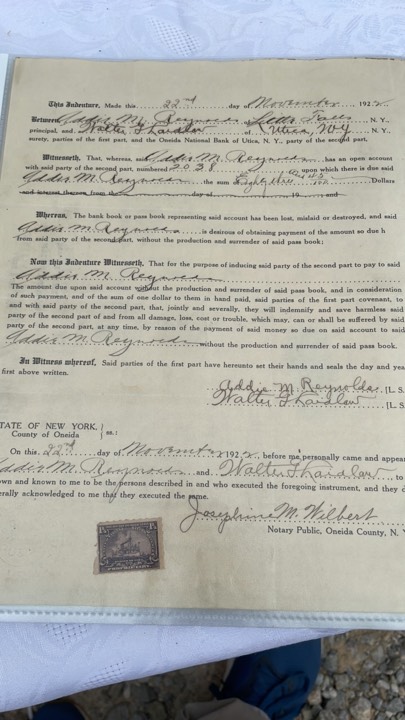 This Indenture, Made this 22nd day of November 1922
Between Addie M. Reynolds of Little Falls, N.Y.,
principal, and Walter Thardlow of Utica, NY, N.Y.,
surety, parties of the first part, and the Oneida National Bank of Utica, N.Y., party of the second part.
Witnesseth, That, whereas, said Addie M. Reynolds has an open account
with said party of the second part, numbered 2038 upon which there is due said
Addie M. Reynolds the sum Eight Dollars
and interest thereon from the day of 19 and
Whereas, The bank book or pass book representing said account has been lost, mislaid or destroyed, and said
Addie M. Reynolds is desirous of obtaining payment of the amount so due h
from said party of the second part, without the production and surrender of said pass book;
Now this Indenture Witnesseth, That for the purpose of inducing said party of the second part to pay to said
Addie M. Reynolds
The amount due upon said account without the production and surrender of said pass book, and in consideration
of such payment, and of the sum of one dollar to them in hand paid, said parties of the first part covenant, to
and with said party of the second part, that, jointly and severally, they will indemnify and save harmless said
party of the second part of and from all damage, loss, cost or trouble, which may, can or shall be suffered by said
party of the second part, at any time, by reason of the payment of said money so due on said account to said
Addie M. Reynolds without the production and surrender of said pass book.
In Witness whereof, Said parties of the first part have hereunto set their hands and seals the day and year
first above written.
Addie M. Reynolds [L. S.
Walter Thardlow [L. S.
STATE OF NEW YORK,
County of Oneida ss.:
On this 22nd day of November 1922, before me personally came and appear
Addie M. Reynolds and Walter Thardlow to
own and known to me to be the persons described in and who executed the foregoing instrument, and they d
erally acknowledged to me that they executed the same.
Josephine M. Wilbert
Notary Public, Oneida County, N. Y.